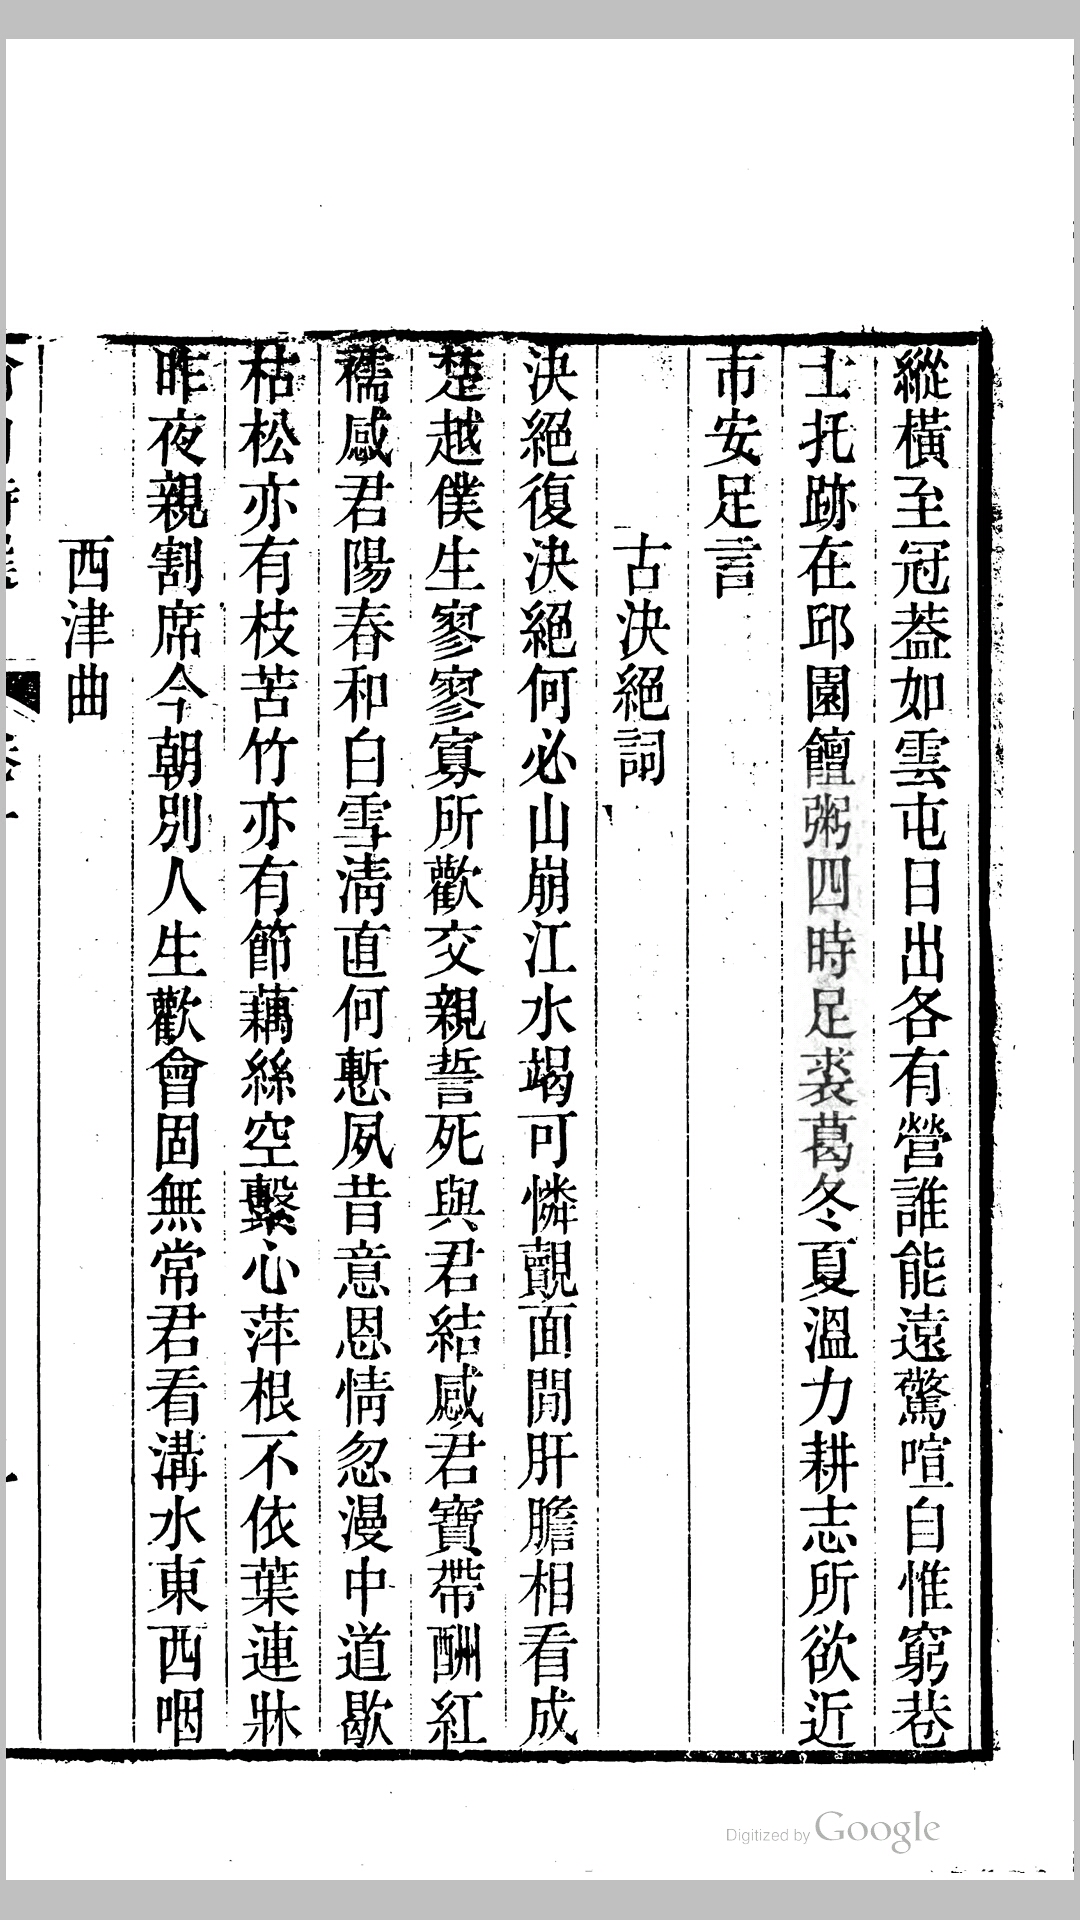 縱橫至冠葢如雲屯日出各有營誰能遠驚喧自惟窮巷
士托跡在邱園饘粥四時足裘葛冬夏溫力耕志所欲近
市安足言
古決絕詞
決絕復決絕何必山崩江水竭可憐覿面閒肝膽相看成
楚越僕生寥寥寡所歡交親誓死與君結感君寶帶酬紅
襦感君陽春和白雪淸直何慙夙昔意恩情忽漫中道歇
枯松亦有枝苦竹亦有節藕絲空繫心萍根不依葉連牀
昨夜親割席今朝別人生歡會固無常君看溝水東西咽
西津曲
Digitized by Google